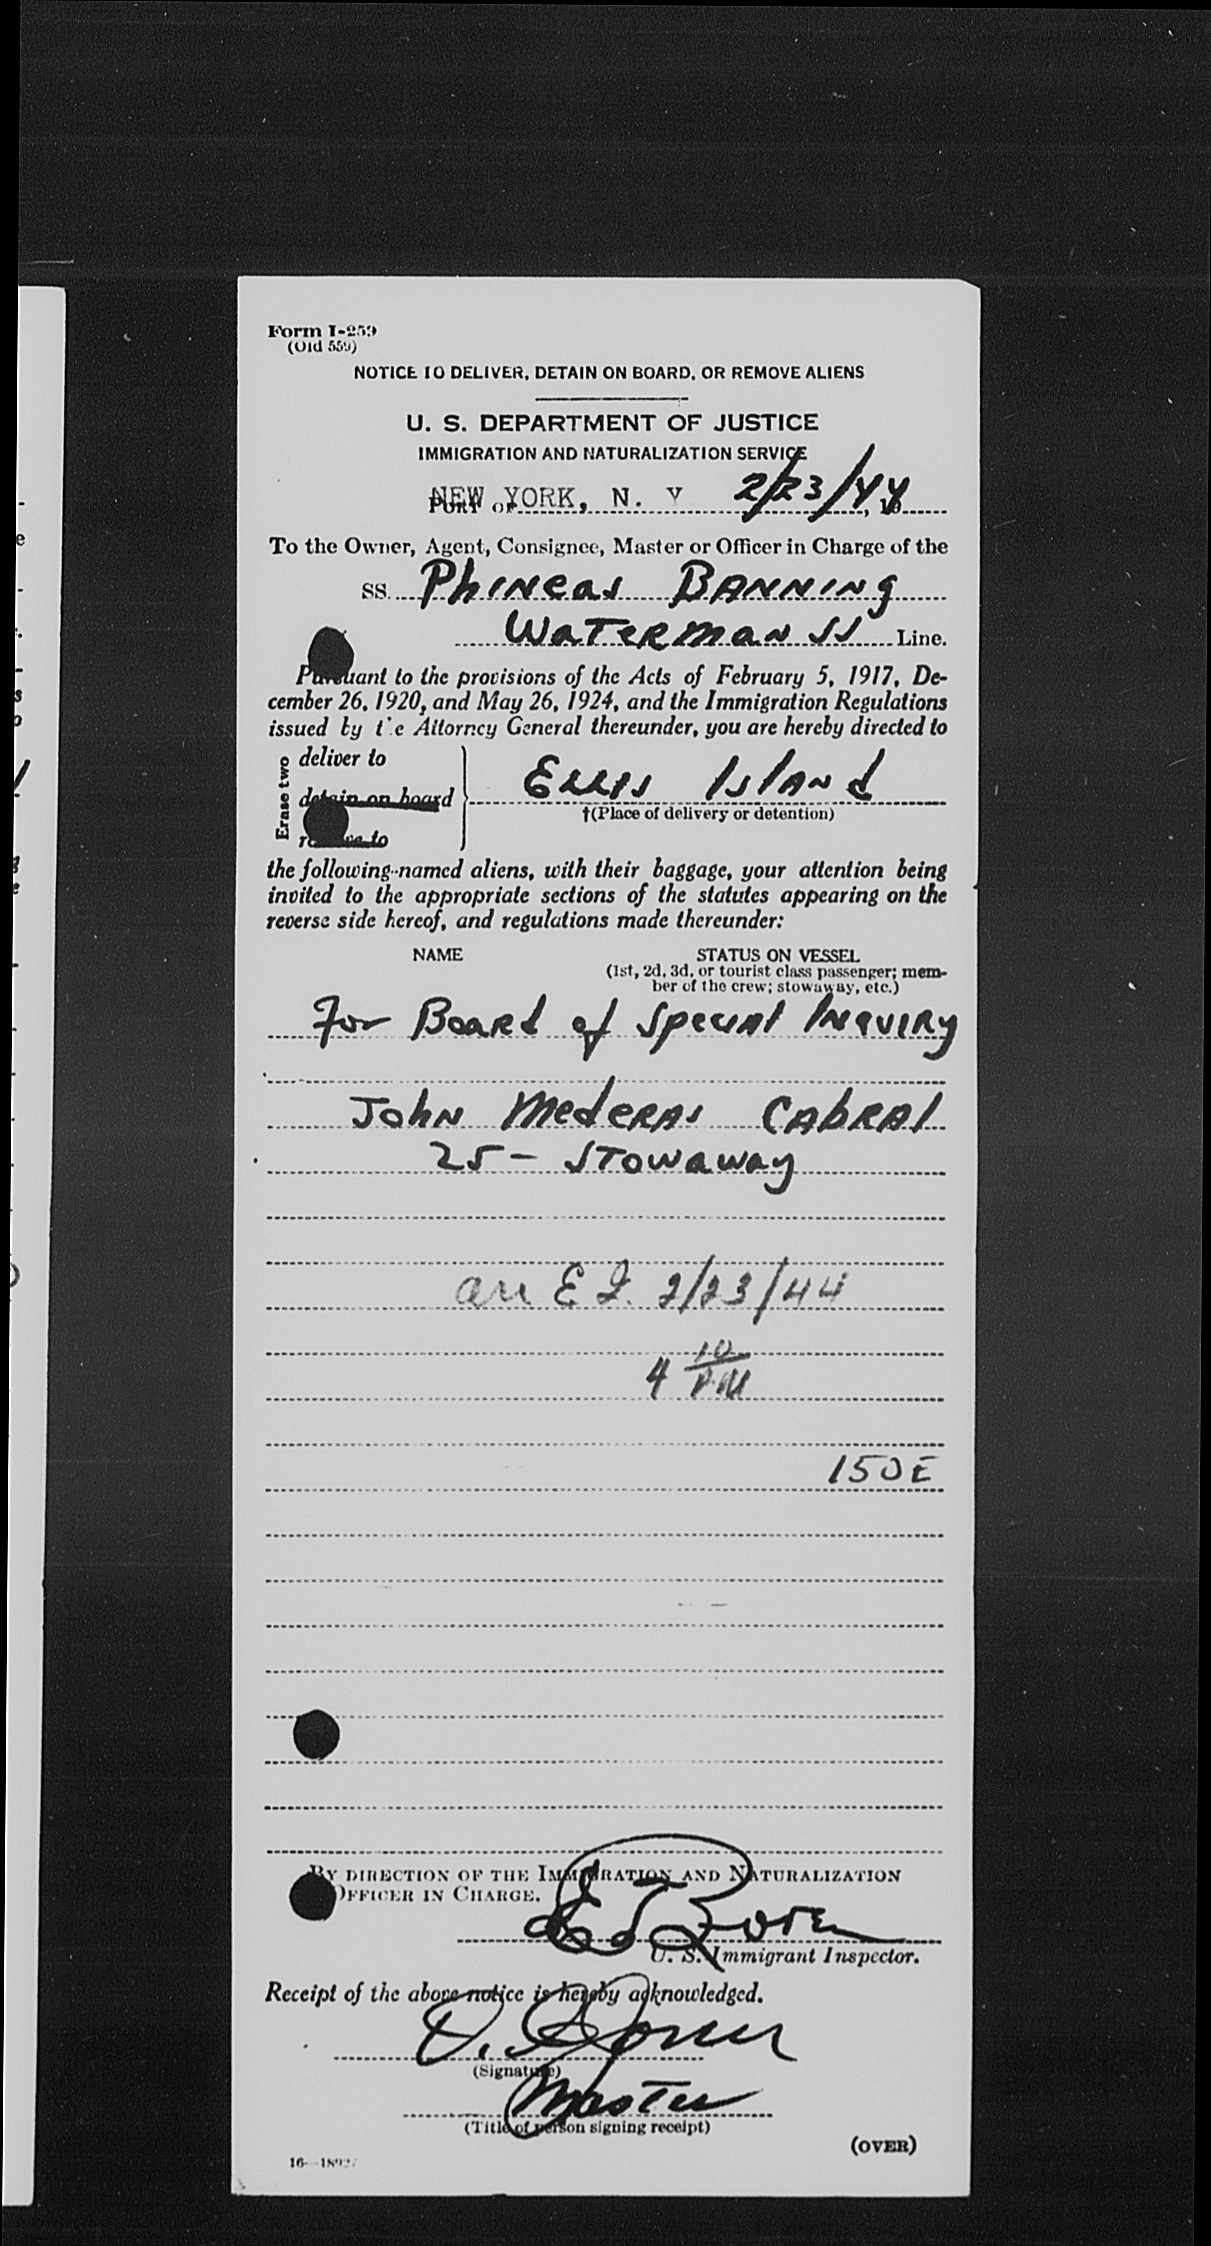 Form I-259
(Old 559)
NOTICE TO DELIVER, DETAIN ON BOARD, OR REMOVE ALIENS
U. S. DEPARTMENT OF JUSTICE
IMMIGRATION AND NATURALIZATION SERVICE
PORT OF NEW YORK, N. Y 2/23/44, 19
To the Owner, Agent, Consignee, Master or Officer in Charge of the
SS. Phineas Banning
Waterman SS Line.
Pursuant to the provisions of the Acts of February 5, 1917, De-
cember 26, 1920, and May 26, 1924, and the Immigration Regulations
issued by the Attorney General thereunder, you are hereby directed to
Erase two
deliver to
detain on board
remove to
Ellis Island
†(Place of delivery or detention)
the following-named aliens, with their baggage, your attention being
invited to the appropriate sections of the statutes appearing on the
reverse side hereof, and regulations made thereunder:
NAME STATUS ON VESSEL
(1st, 2d, 3d, or tourist class passenger; mem-
ber of the crew; stowaway, etc.)
For Board of Special Inquiry
John Mederas Cabral
25 - Stowaway
arr E I. 2/23/44
4 10 PM
150E
BY DIRECTION OF THE IMMIGRATION AND NATURALIZATION
OFFICER IN CHARGE.
U. S. Immigrant Inspector.
Receipt of the above notice is hereby acknowledged.
(Signature)
Master
(Title of person signing receipt)
(OVER)